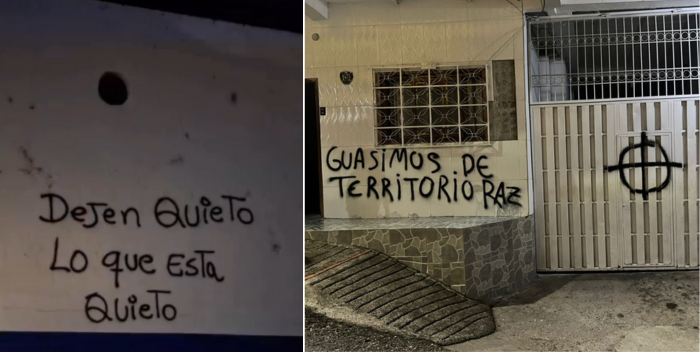 Dejen Quieto
Lo que Esta
Quieto
GUASIMOS DE
TERRITORIO PAZ